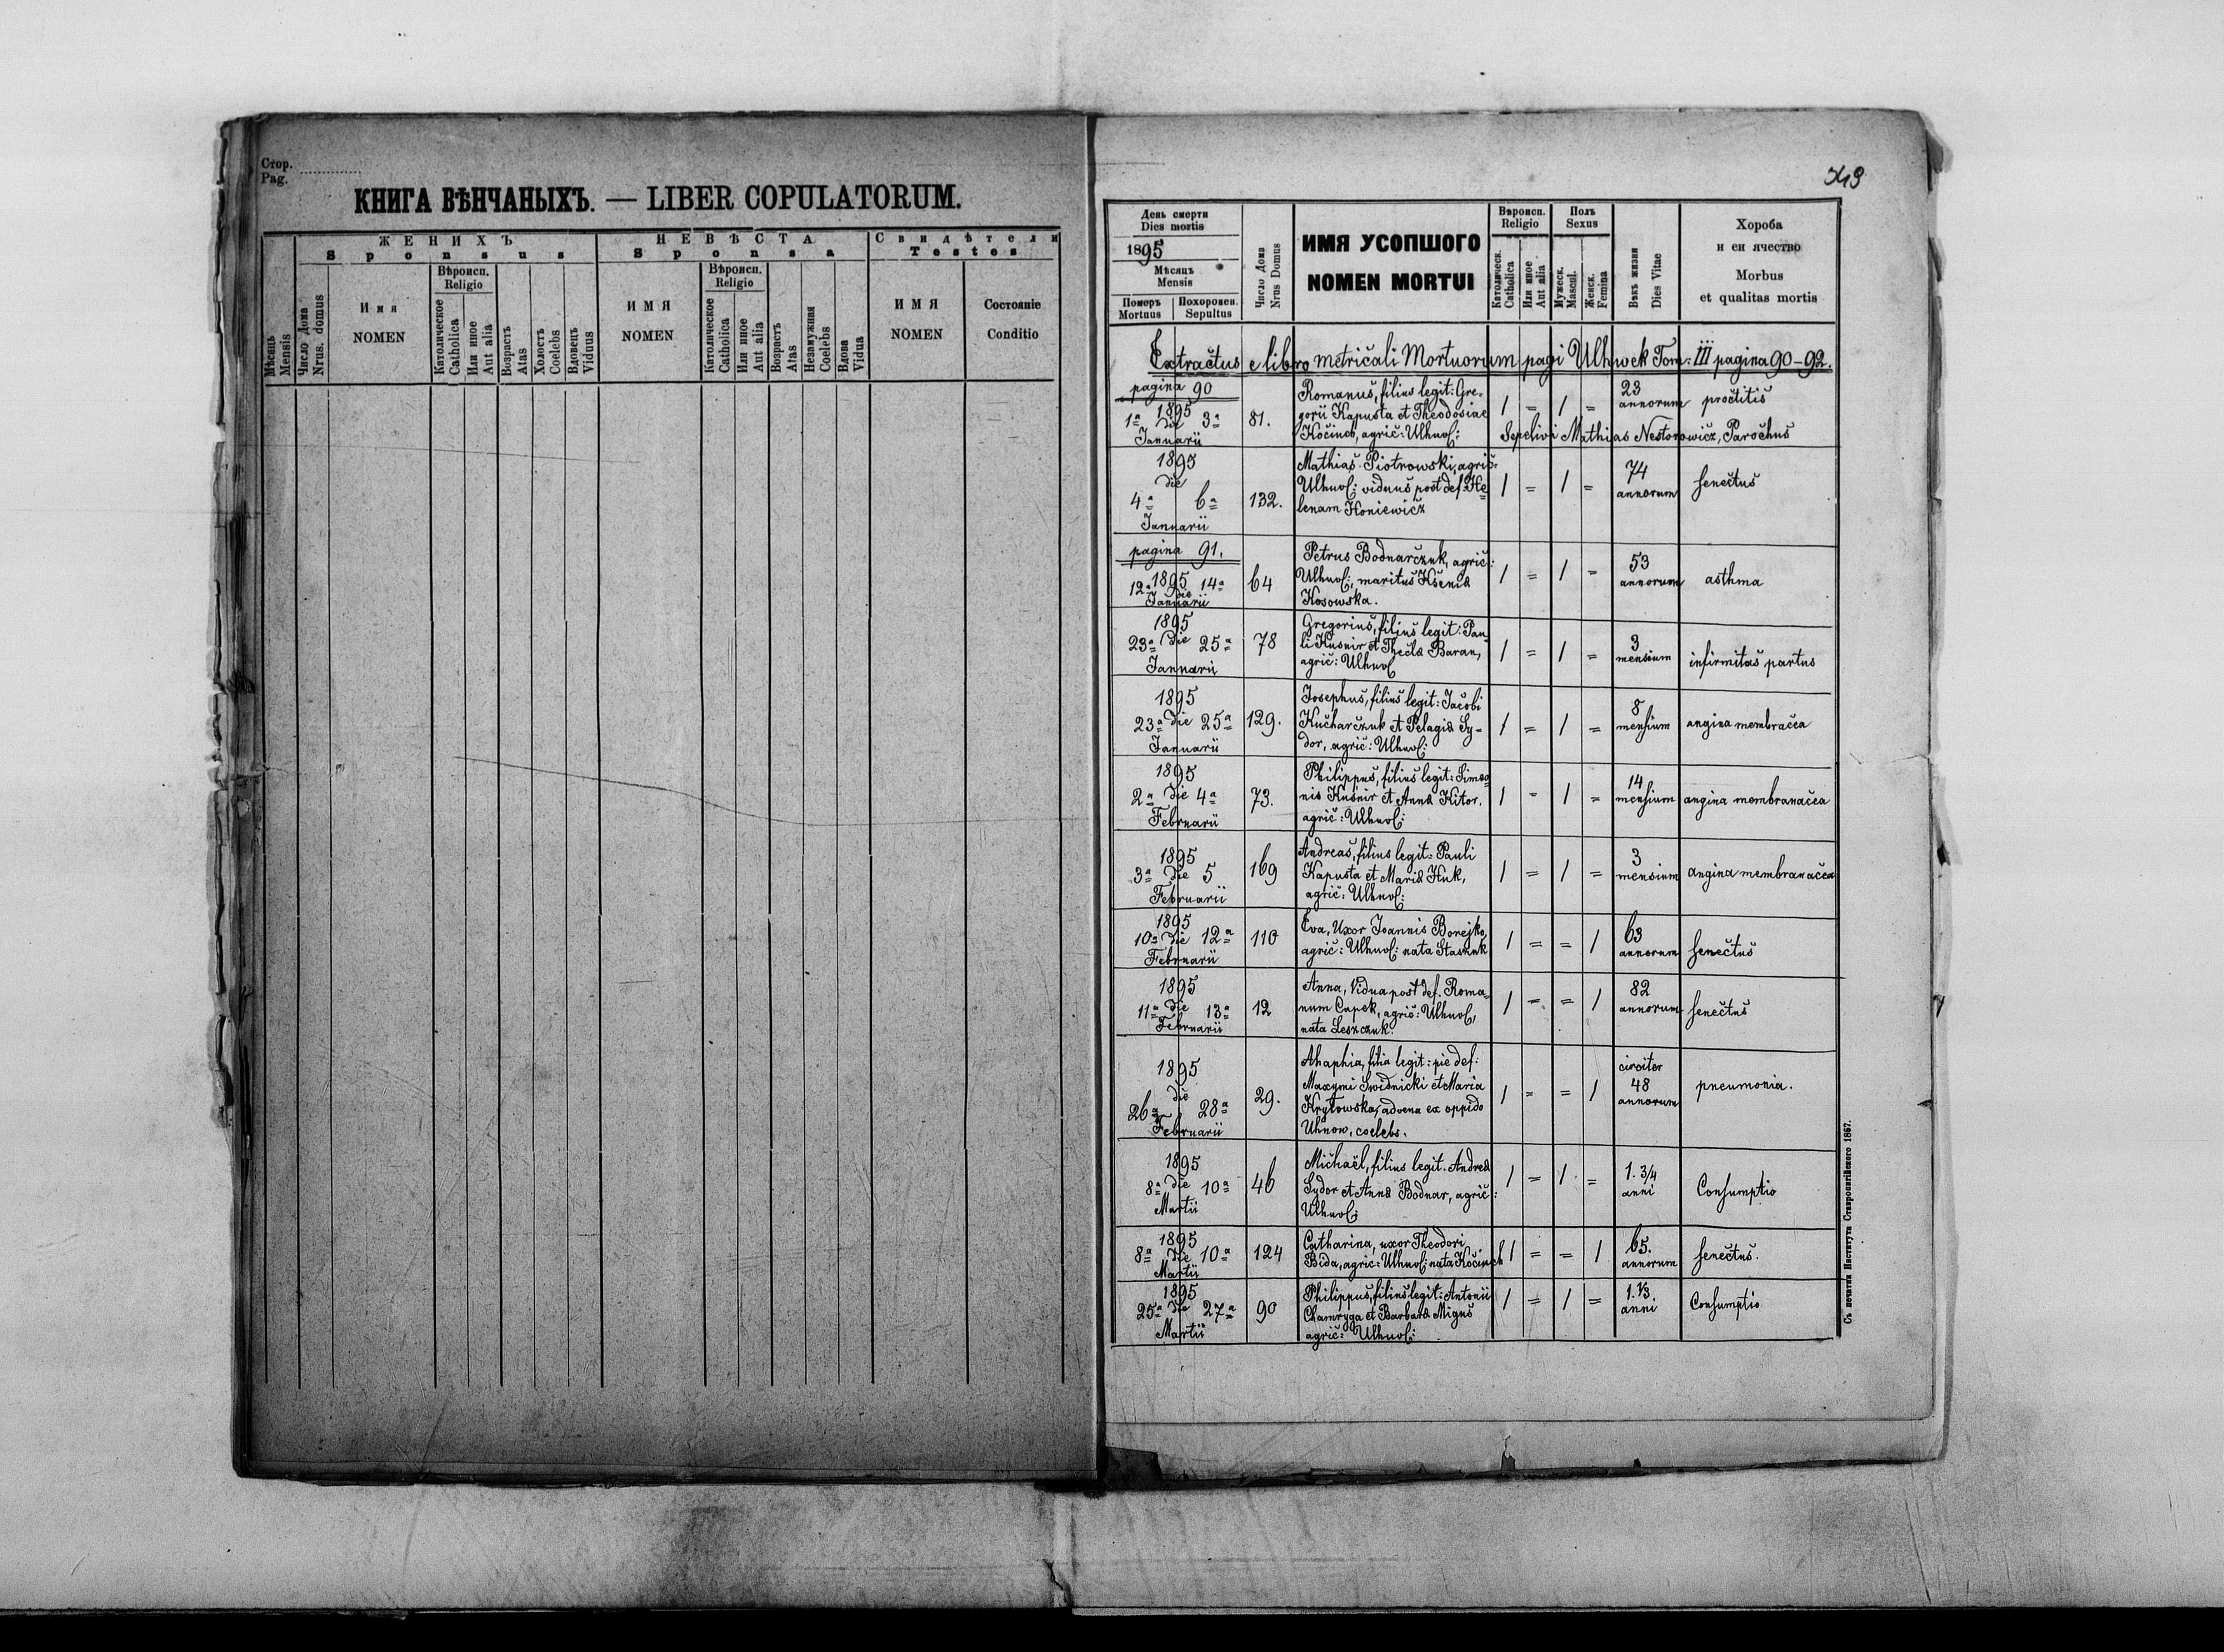 Стор.
Pag.
КНИГА ВѢНЧАНЫХЪ. — LIBER COPULATORUM.
Мѣсяць
Mensis
ЖЕНИХЪ
Sponsus
Число Дома
Nrus. domus
Имя
NOMEN
Вѣроисп.
Religio
Католическое
Catholica
Или иное
Aut alia
Возрастъ
Atas
Холостъ
Coelebs
Вдовецъ
Viduus
НЕВѢСТА
Sponsa
ИМЯ
NOMEN
Вѣроисп.
Religio
Католическое
Catholica
Или иное
Aut alia
Возрастъ
Atas
Незамужная
Coelebs
Вдова
Vidua
Свидѣтели
Testes
ИМЯ
NOMEN
Состояніе
Conditio
День смерти
Dies mortis
1895
Мѣсяць
Mensis
Померъ
Mortuus
Похоронен.
Sepultus
Число Дома
Nrus Domus
ИМЯ УСОПШОГО
NOMEN MORTUI
Вѣроисп.
Religio
Католическ.
Catholica
Или иное
Aut alia
Полъ
Sexus
Мужеск.
Mascul.
Женск.
Femina
Вѣкъ жизни
Dies Vitae
Хороба
и еи ячество
Morbus
et qualitas mortis
Extractus e libro metricali Mortuorum pagi Ulhwek Tom: III pagina 90-92.
pagina 90
1895
1ª die 3ª
Januarii
81.
Romanus, filius legit: Gre-
gorii Kapusta et Theodosiae
Kocinch, agric: Ulhwol:
1 = 1 =
23
annorum
proctitis
Sepelivi Mathias Nestorowicz, Parochus
1895
die
4ª 6ª
Januarii
132.
Mathias Piotrowski, agric:
Ulhwol: viduus post def. He-
lenam Honiewicz
1 = 1 =
74
annorum
senectus
pagina 91.
1895
12ª die 14ª
Januarii
64
Petrus Bodnarczuk, agric:
Ulhwol:, maritus Kseniae
Kosowska.
1 = 1 =
53
annorum
asthma
1895
23ª die 25ª
Januarii
78
Gregorius, filius legit: Pau-
li Kusnir et Theclae Baran,
agric: Ulhwol
1 = 1 =
3
mensium
infirmitas partus
1895
23ª die 25ª
Januarii
129.
Josephus, filius legit: Jacobi
Kucharczuk et Pelagiae Sy-
dor, agric: Ulhwol:
1 = 1 =
8
mensium
angina membracea
1895
2ª die 4ª
Februarii
73.
Philippus, filius legit: Simeo-
nis Kusnir et Annae Kitor.
agric: Ulhwol:
1 = 1 =
14
mensium
angina membranacea
1895
3ª die 5
Februarii
169
Andreas, filius legit: Pauli
Kapusta et Mariae Huk,
agric: Ulhwol:
1 = 1 =
3
mensium
angina membranacea
1895
10ª die 12ª
Februarii
110
Eva, Uxor Joannis Borejko,
agric: Ulhwol: nata Staszuk
1 = = 1
63
annorum
senectus
1895
11ª die 13ª
Februarii
12
Anna, Vidua post def. Roma-
num Cupek, agric: Ulhwol,
nata Leszczuk.
1 = = 1
82
annorum
senectus
1895
die
26ª 28ª
Februarii
29.
Ahaphia, filia legit: pie def:
Maxymi Swidnicki et Maria
Krytowska, advena ex oppido
Uhnow, coelebs.
1 = = 1
circiter
48
annorum
pneumonia.
1895
8ª die 10ª
Martii
46
Michaël, filius legit. Andreae
Sydor et Annae Bodnar, agric:
Ulhwol:
1 = 1 =
1. 3/4
anni
Consumptio
1895
8ª die 10ª
Martii
124
Catharina, uxor Theodori
Bida, agric: Ulhwol: nata Kocinch
1 = = 1
65.
annorum
senectus.
1895
25ª die 27ª
Martii
90
Philippus, filius legit: Antonii
Chamryga et Barbarae Migus
agric: Ulhwol:
1 = 1 =
1. 1/3
anni
Consumptio
Съ печатни Института Ставропигійского 1867.